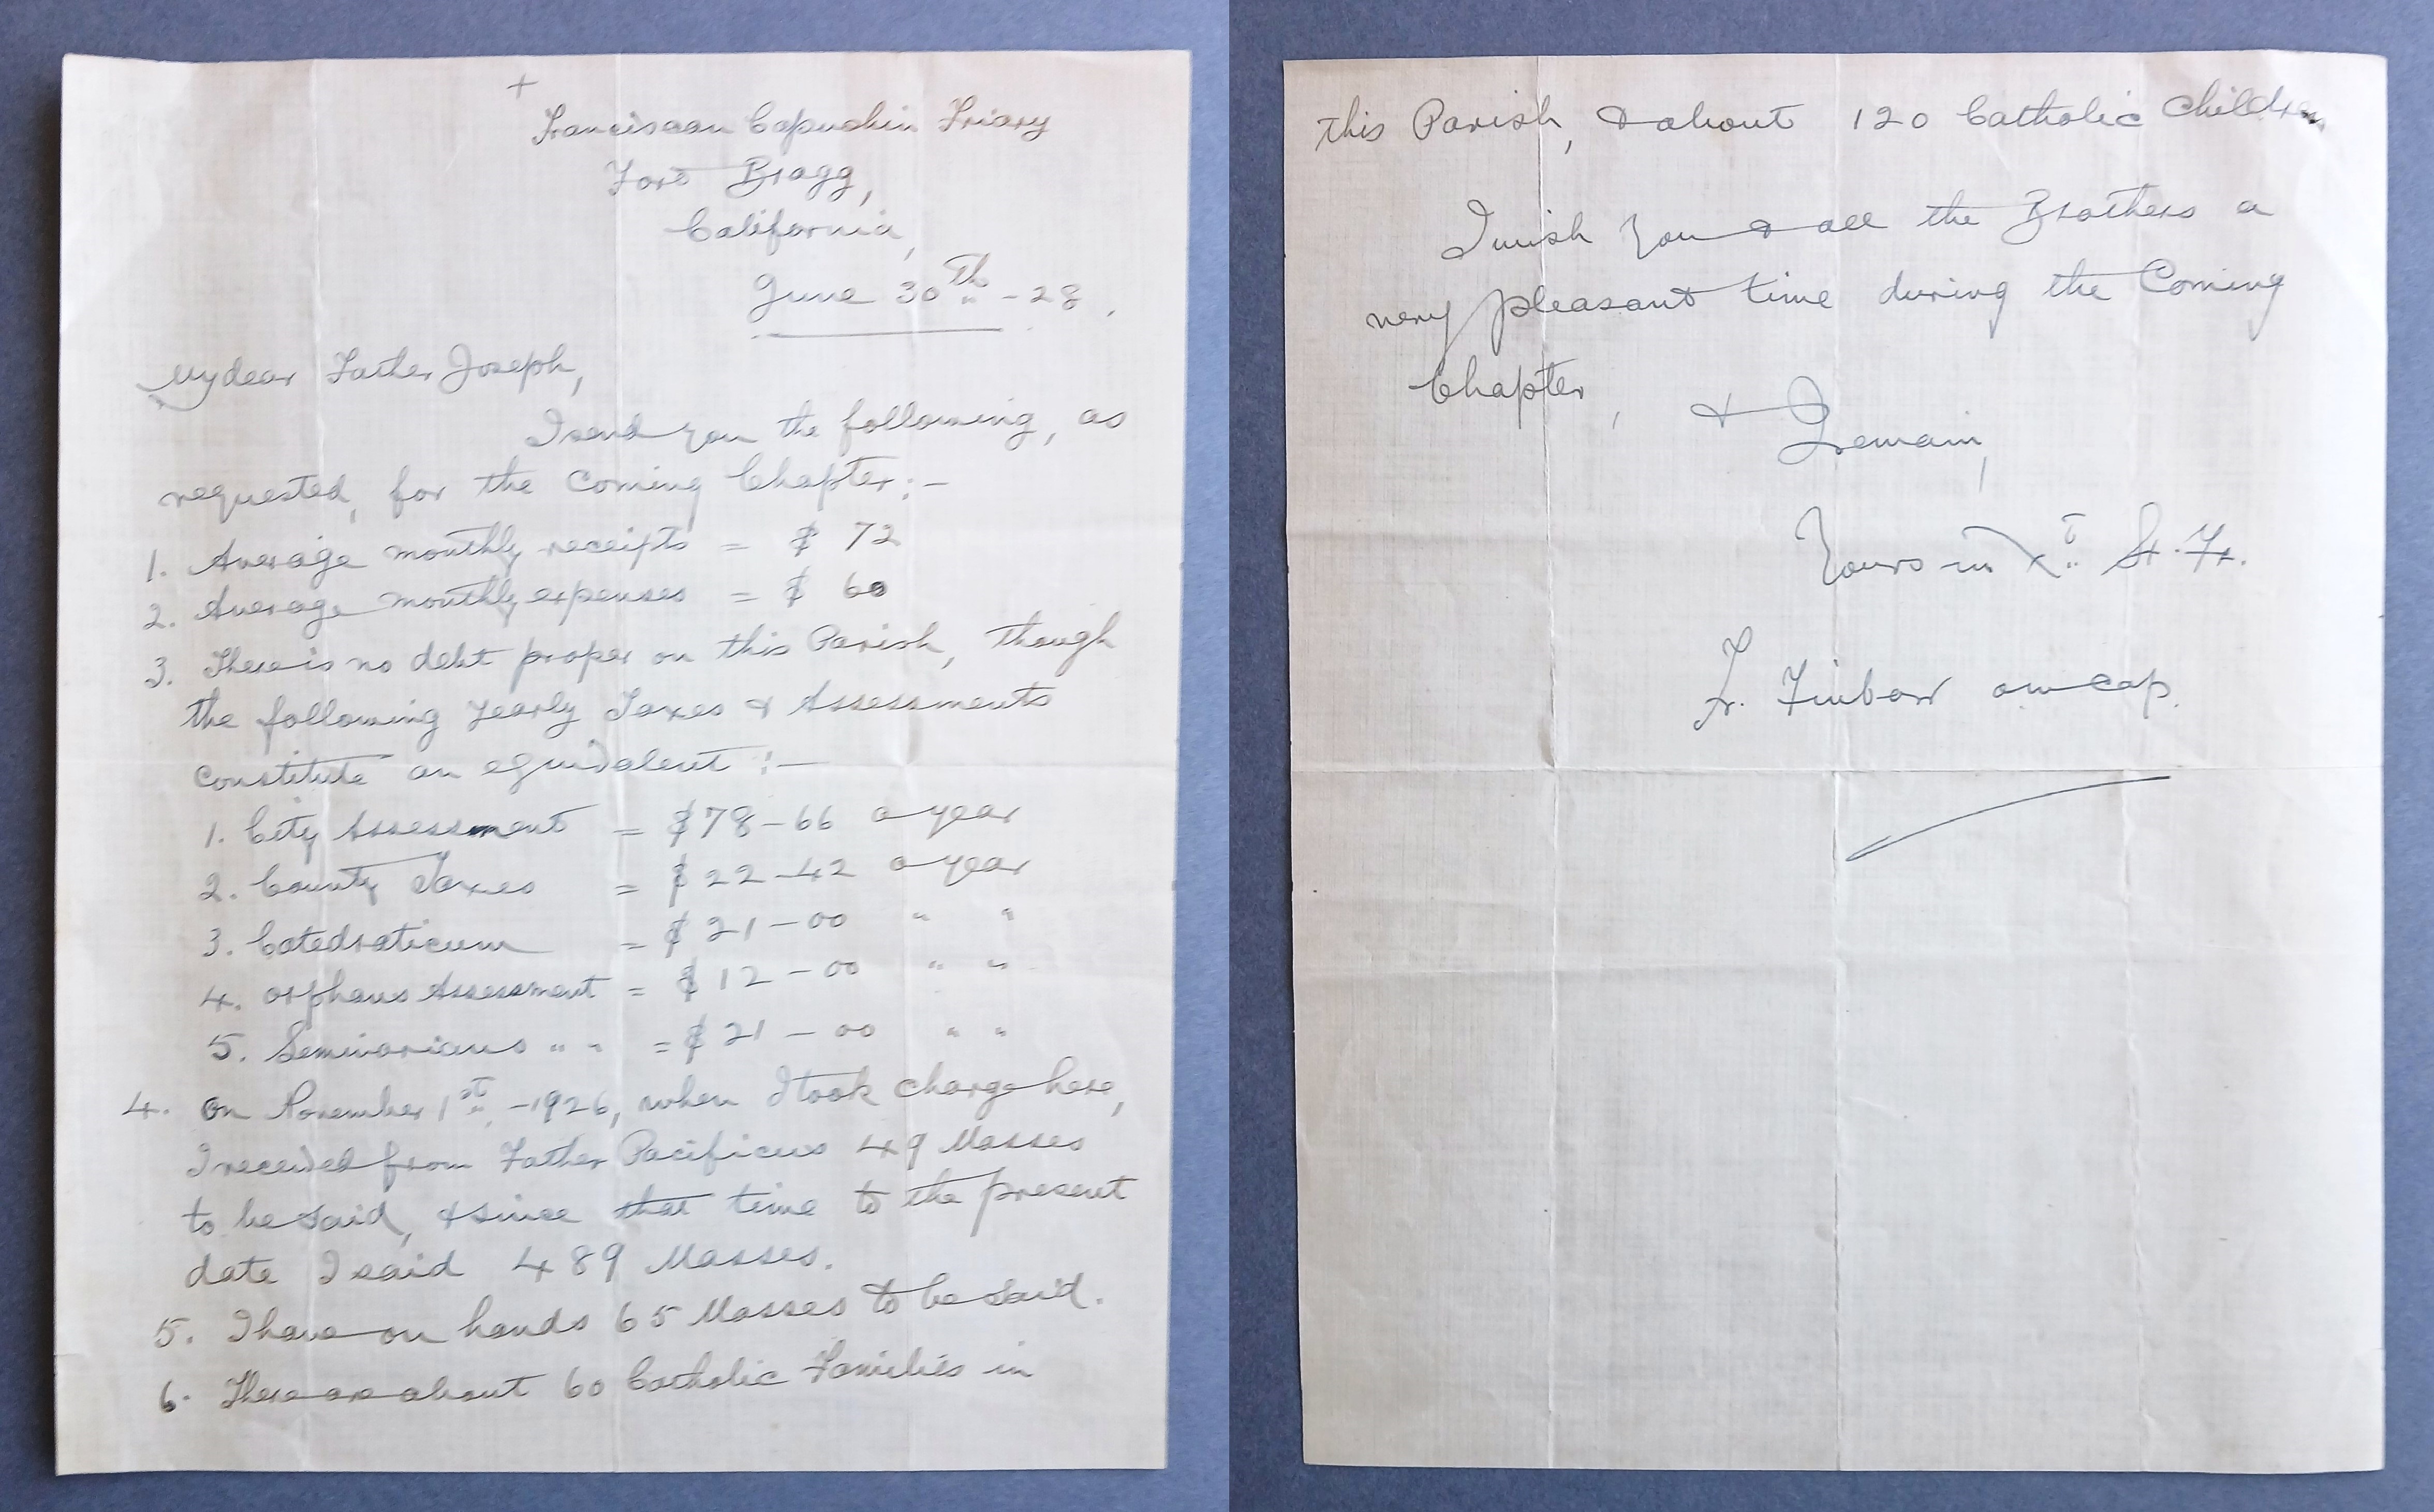 +
Franciscan Capuchin Friary
Fort Bragg,
California,
June 30th -28.
My dear Father Joseph,
I send you the following, as
requested, for the Coming Chapter:-
1. Average monthly receipts = $ 72
2. Average monthly expenses = $ 60
3. There is no debt proper on this Parish, though
the following yearly Taxes & Assessments
constitute an equivalent :-
1. City Assessment = $78-66 a year
2. County Taxes = $22-42 a year
3. Catedraticum = $21-00 " "
4. Orphans Assessment = $12-00 " "
5. Seminarians " " = $21-00 " "
4. On November 1st -1926, when I took charge here,
I received from Father Pacificus 49 Masses
to be said, & since that time to the present
date I said 489 Masses.
5. I have on hands 65 Masses to be said.
6. There are about 60 Catholic Families in
this Parish, & about 120 Catholic Children
I wish you & all the Brothers a
very pleasant time during the Coming
Chapter, & I remain,
Yours in Xt St. Fr.
Fr. Finbar om cap.